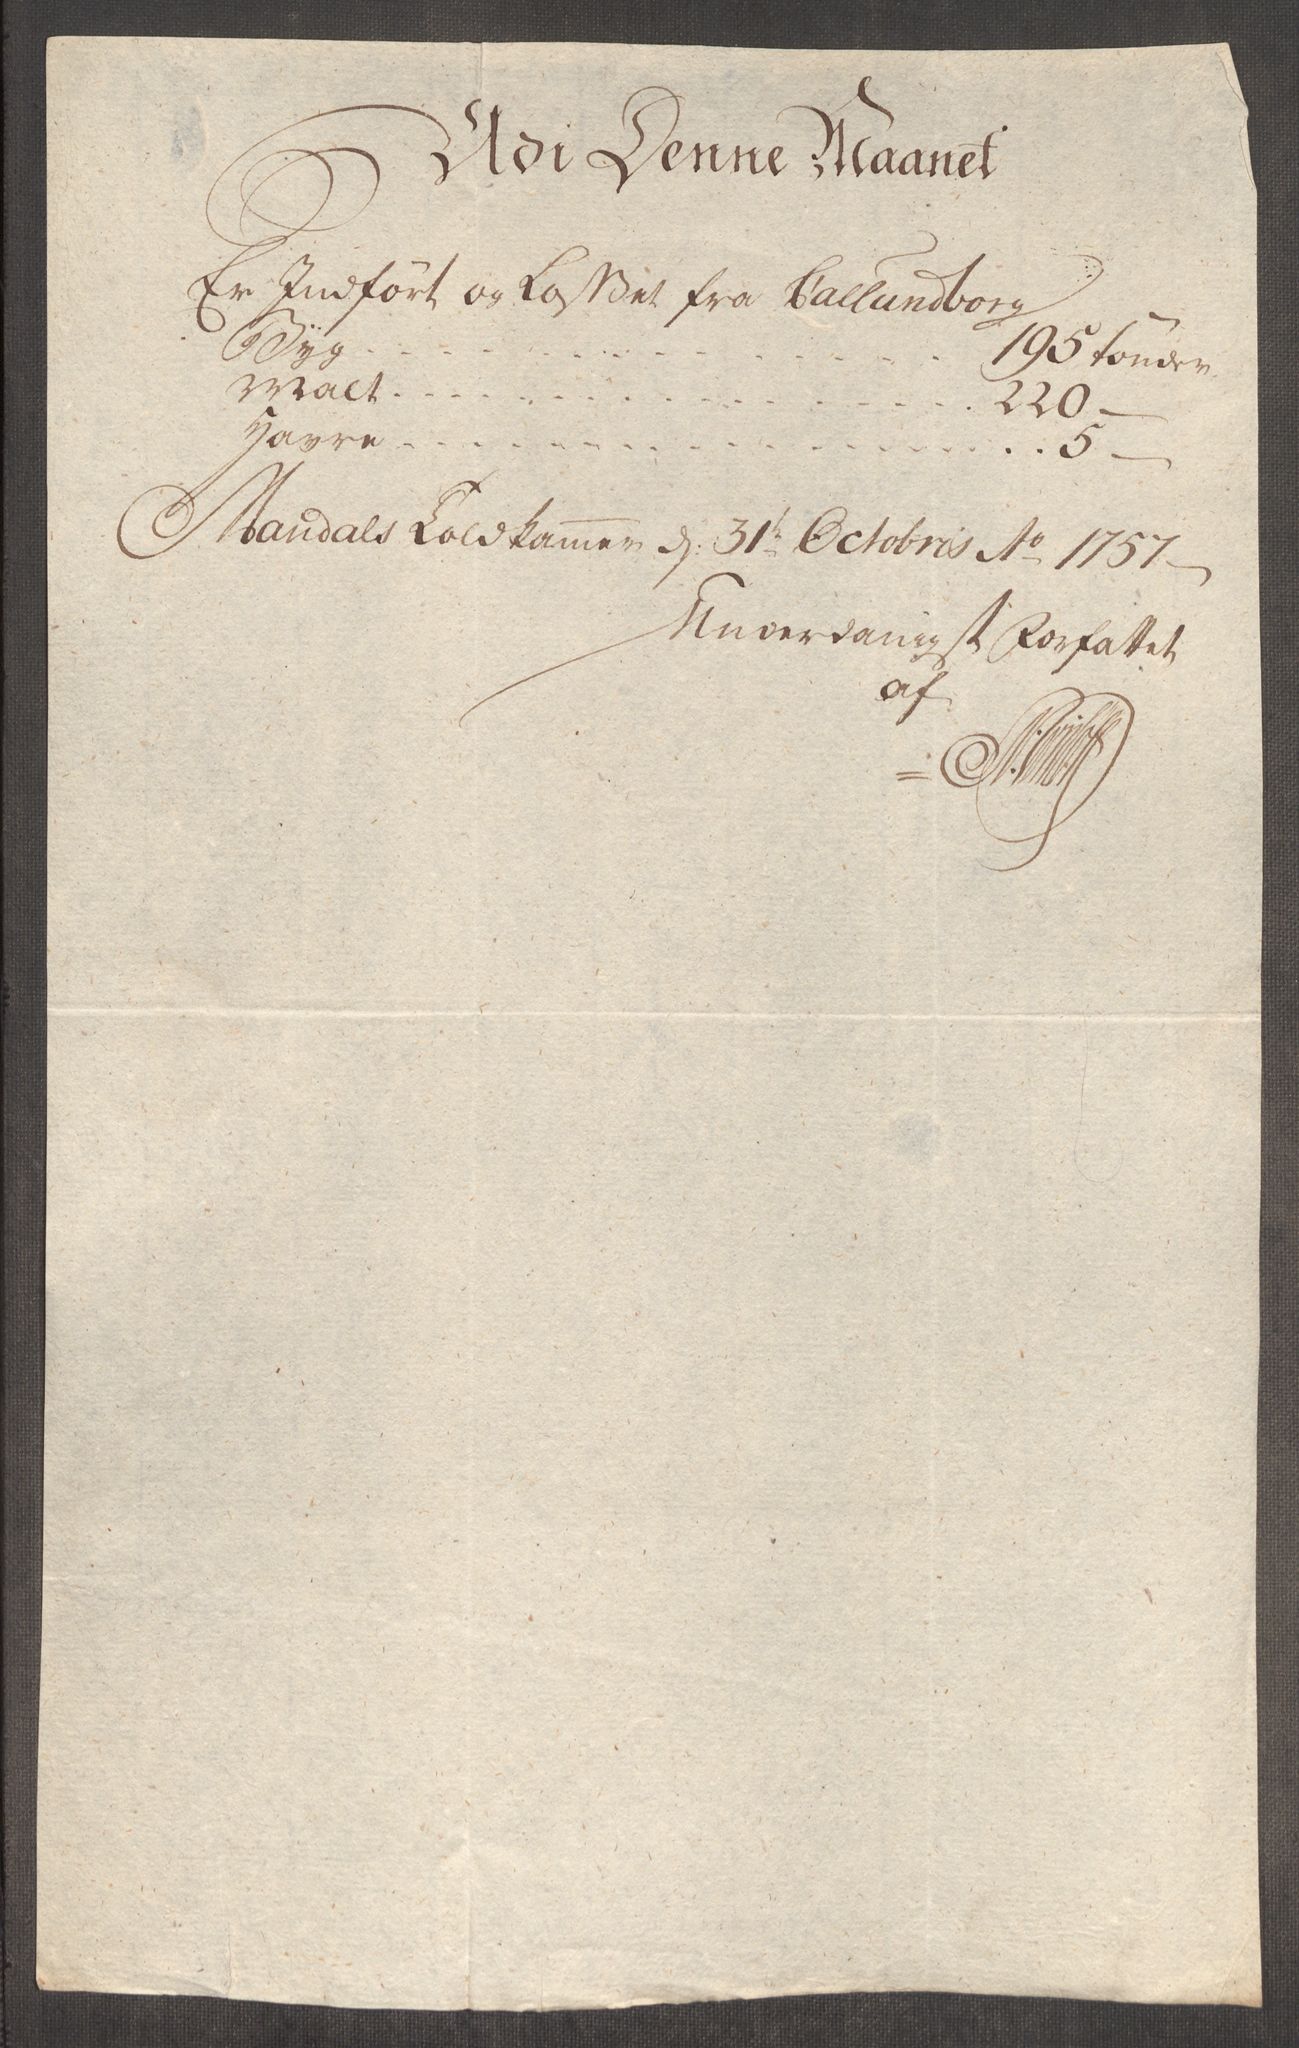 Udi Denne Maanet
Er Indført og Losset fra Callundborg
Byg - - - 195 tønder
Malt - - - 220 —
Havre - - - 5 —
Mandals Toldkamer d: 31te Octobris Ao 1757
Underdanigst Forfattet
af